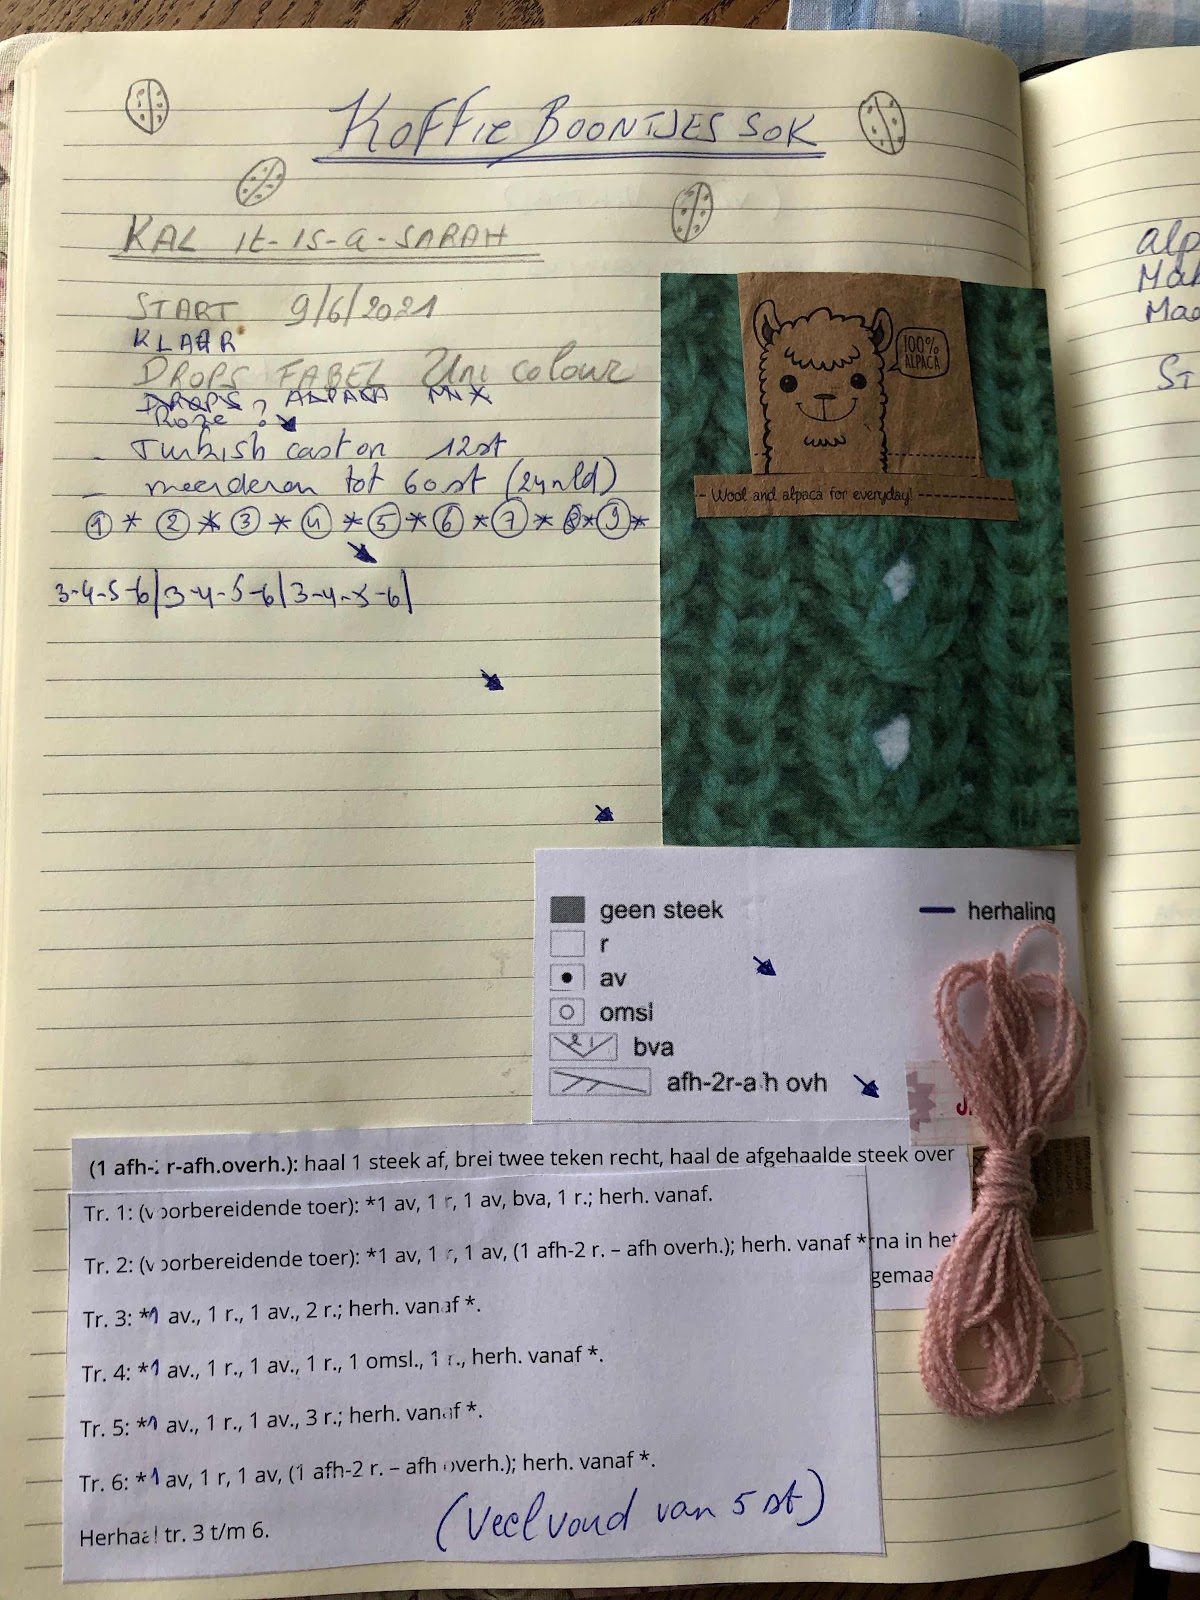 KOFFIE BOONTJES SOK
KAL It-IS-a-SARAH
START 9/6/2021
KLAAR
DROPS FABEL Uni colour
DROPS ALPACA MIX
Roze?
- Turkish cast on 12st
- meerderen tot 60st (24nld)
① * ② * ③ * ④ * ⑤ * ⑥ * ⑦ * ⑧ * ⑨ *
3-4-5-6|3-4-5-6|3-4-5-6|
100%
ALPACA
- Wool and alpaca for everyday!
geen steek
herhaling
r
av
omsl
bva
afh-2r-a h ovh
(1 afh-2 r-afh.overh.): haal 1 steek af, brei twee teken recht, haal de afgehaalde steek over
Tr. 1: (voorbereidende toer): *1 av, 1 r, 1 av, bva, 1 r.; herh. vanaf.
Tr. 2: (voorbereidende toer): *1 av, 1 r, 1 av, (1 afh-2 r. – afh overh.); herh. vanaf *
rna in het
gemaa
Tr. 3: *1 av., 1 r., 1 av., 2 r.; herh. vanaf *.
Tr. 4: *1 av., 1 r., 1 av., 1 r., 1 omsl., 1 r., herh. vanaf *.
Tr. 5: *1 av., 1 r., 1 av., 3 r.; herh. vanaf *.
Tr. 6: *1 av, 1 r, 1 av, (1 afh-2 r. – afh overh.); herh. vanaf *.
Herhaal tr. 3 t/m 6.
(Veelvoud van 5 st)
alp
Ma
St